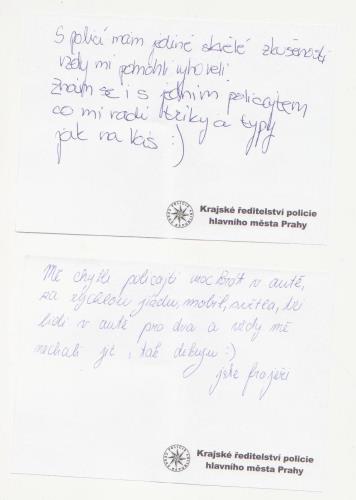 S policí mám jedině skvělé zkušenosti
vždy mi pomohli vyhověli!
Znám se i s jedním policajtem
co mi radí triky a typy
jak na Vás :)
Krajské ředitelství policie
hlavního města Prahy
Mě chytli policajti mockrát v autě,
za rychlou jízdu, mobil, světla, tři
lidi v autě pro dva a vždy mě
nechali jít, tak dekuju :)
jste frajeři
Krajské ředitelství policie
hlavního města Prahy